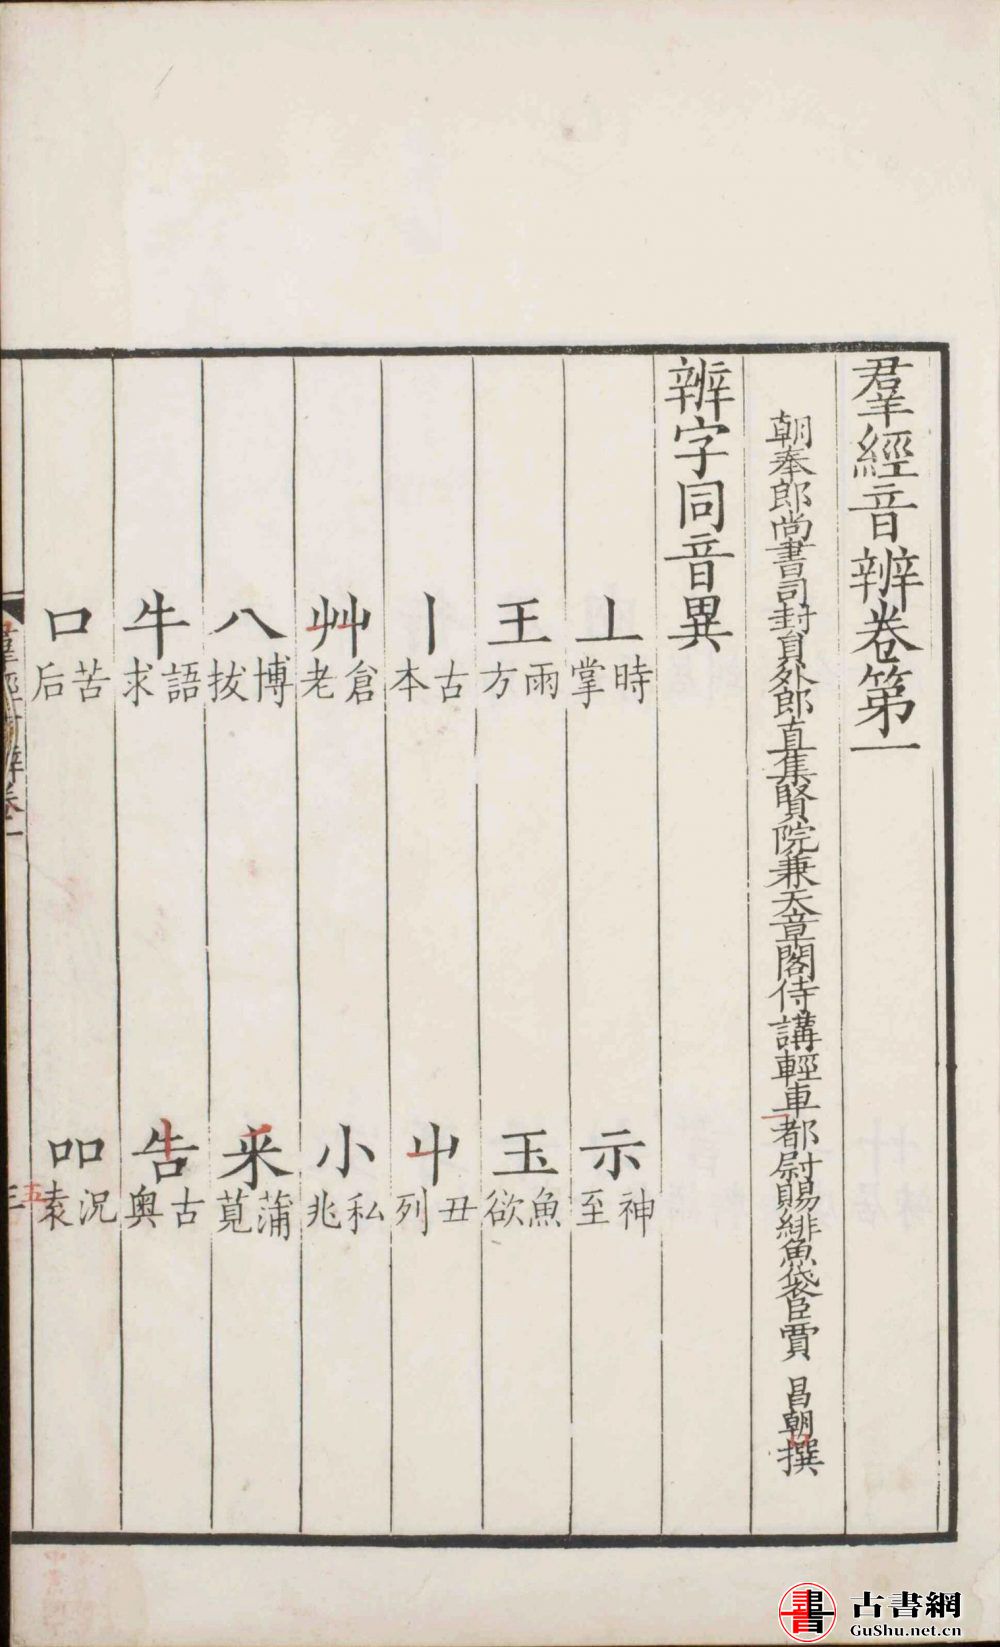 羣經音辨卷第一
朝奉郎尚書司封貟外郎直集賢院兼天章閣侍講輕車都尉賜緋魚袋臣賈 昌朝撰
辨字同音異
丄 時掌 示 神至
王 雨方 玉 魚欲
丨 古本 屮 丑列
艸 倉老 小 私兆
八 博拔 釆 蒲莧
牛 語求 告 古奥
口 苦后 吅 況袁
古書網
GuShu.net.cn